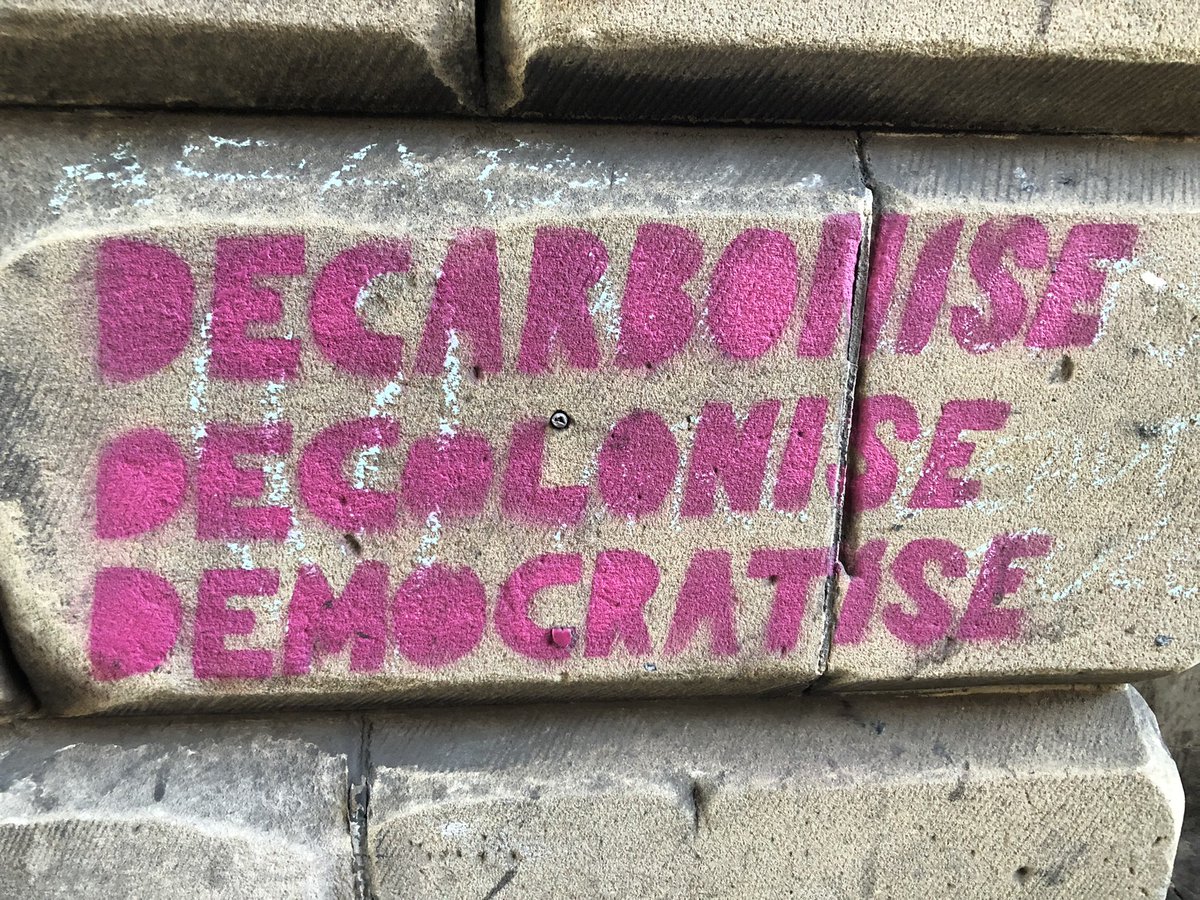 DECARBONISE
DECOLONISE
DEMOCRATISE